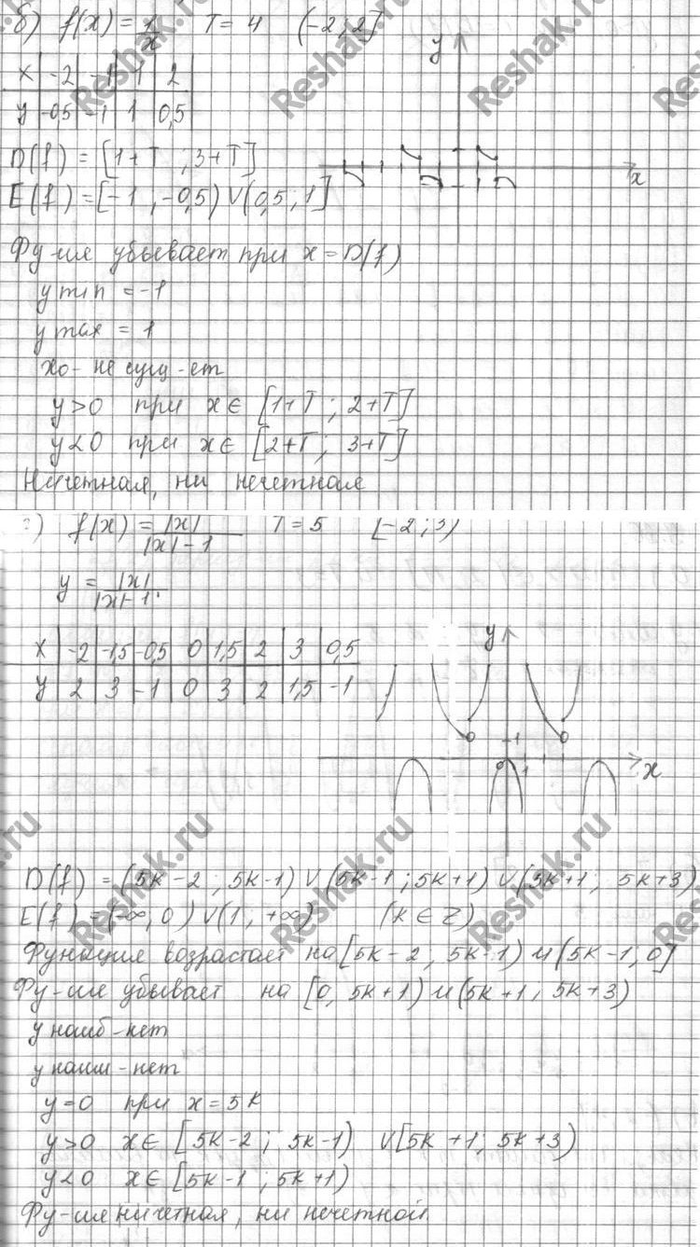 б) f(x) = 1/x T = 4 (-2; 2]
x -2 -1 1 2
y -0,5 -1 1 0,5
D(f) = [1+T ; 3+T]
E(f) = [-1, -0,5) ∨ (0,5; 1]
y
x
Фу-ия убывает при x = D(f)
y min = -1
y max = 1
x0 - не сущ-ет
y>0 при x ∈ [1+T ; 2+T]
y<0 при x ∈ [2+T ; 3+T]
Ни четная, ни нечетная
г) f(x) = |x|/|x|-1 T = 5 [-2; 3)
y = |x|/|x|-1.
x -2 -1,5 -0,5 0 1,5 2 3 0,5
y 2 3 -1 0 3 2 1,5 -1
y
1
0 1
x
D(f) = (5k-2; 5k-1) ∨ (5k-1; 5k+1) ∨ (5k+1; 5k+3)
E(f) = (-∞, 0) ∨ (1, +∞) (k ∈ Z)
Функция возрастает на [5k-2; 5k-1) и (5k-1, 0]
Фу-ия убывает на [0, 5k+1) и (5k+1, 5k+3)
y наиб - нет
y наим - нет
y=0 при x = 5k
y>0 x ∈ [5k-2; 5k-1) ∨ [5k+1; 5k+3)
y<0 x ∈ [5k-1; 5k+1)
Фу-ия ни четная, ни нечетной.
Reshak.ru
Reshak.ru
Reshak.ru
Reshak.ru
Reshak.ru